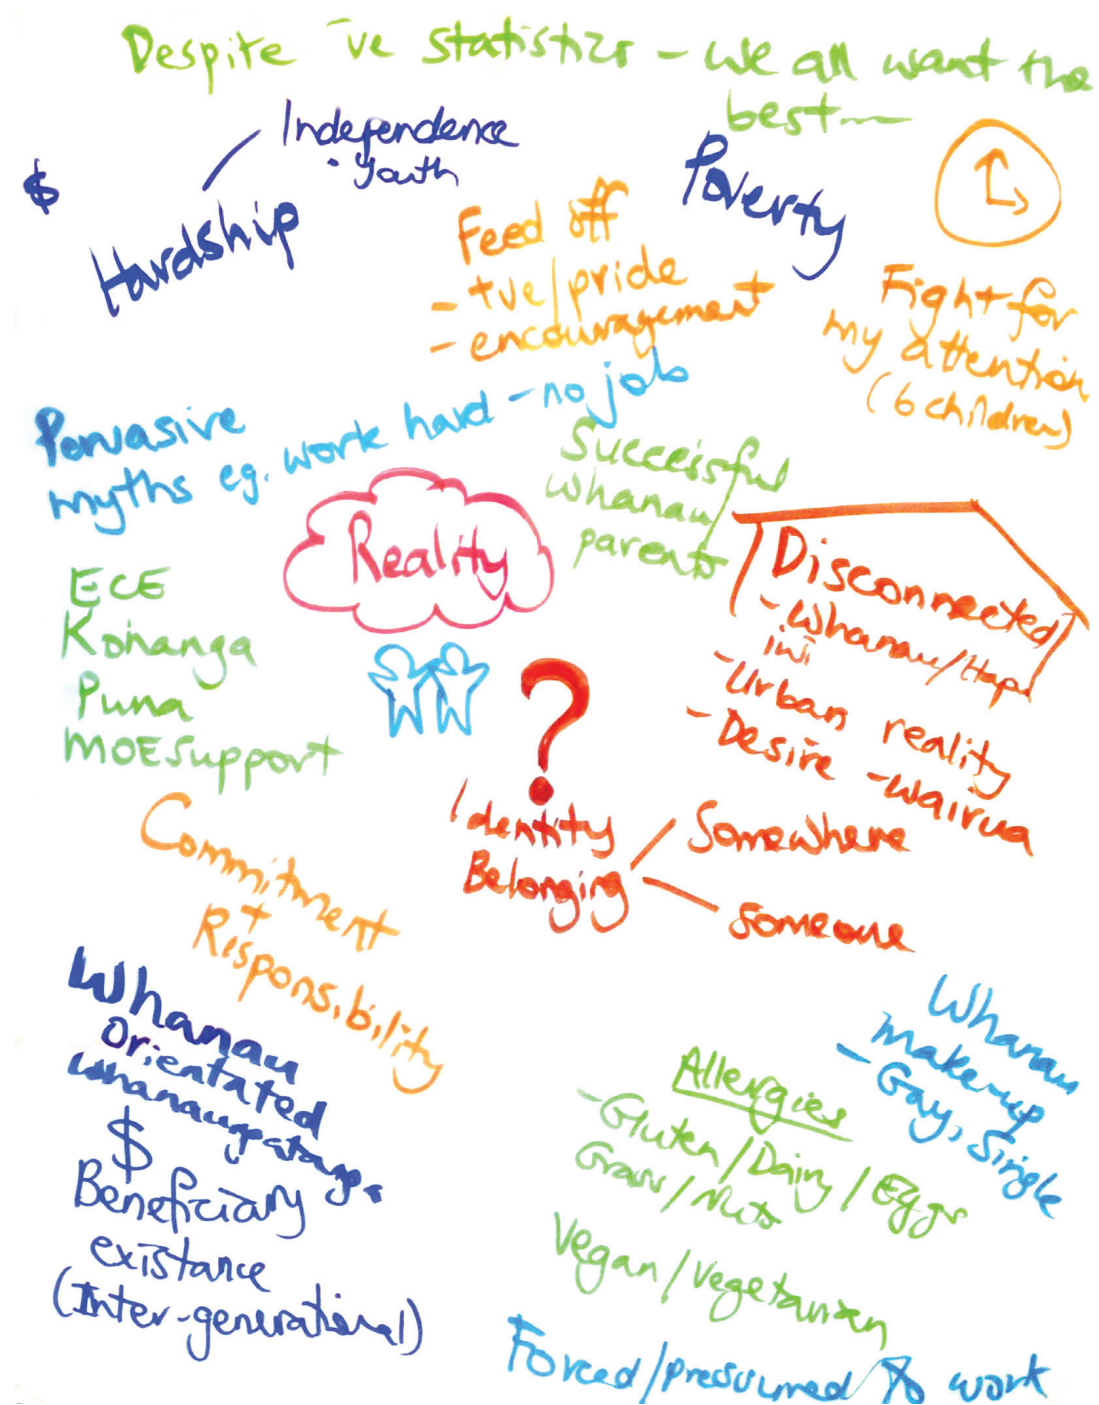 Despite -ve statistics - we all want the
best
Independence
· Youth
$
Hardship
Poverty
Feed off
- +ve/pride
- encouragement
Fight for
my attention
(6 children)
Pervasive
myths eg. work hard - no job
Successful
whanau/
parents
Reality
ECE
Kohanga
Puna
MOE support
Disconnected
- Whanau/Hapu
iwi
- Urban reality
- Desire - wairua
?
Identity
Belonging
Somewhere
Someone
Commitment
+
Responsibility
Whanau
Orientated
$
Beneficiary
existance
(Inter-generational)
Whanau
make-up
- Gay, Single
Allergies
- Gluten/Dairy/Eggs
Grass/Nuts
Vegan/Vegetarian
Forced/pressured to work